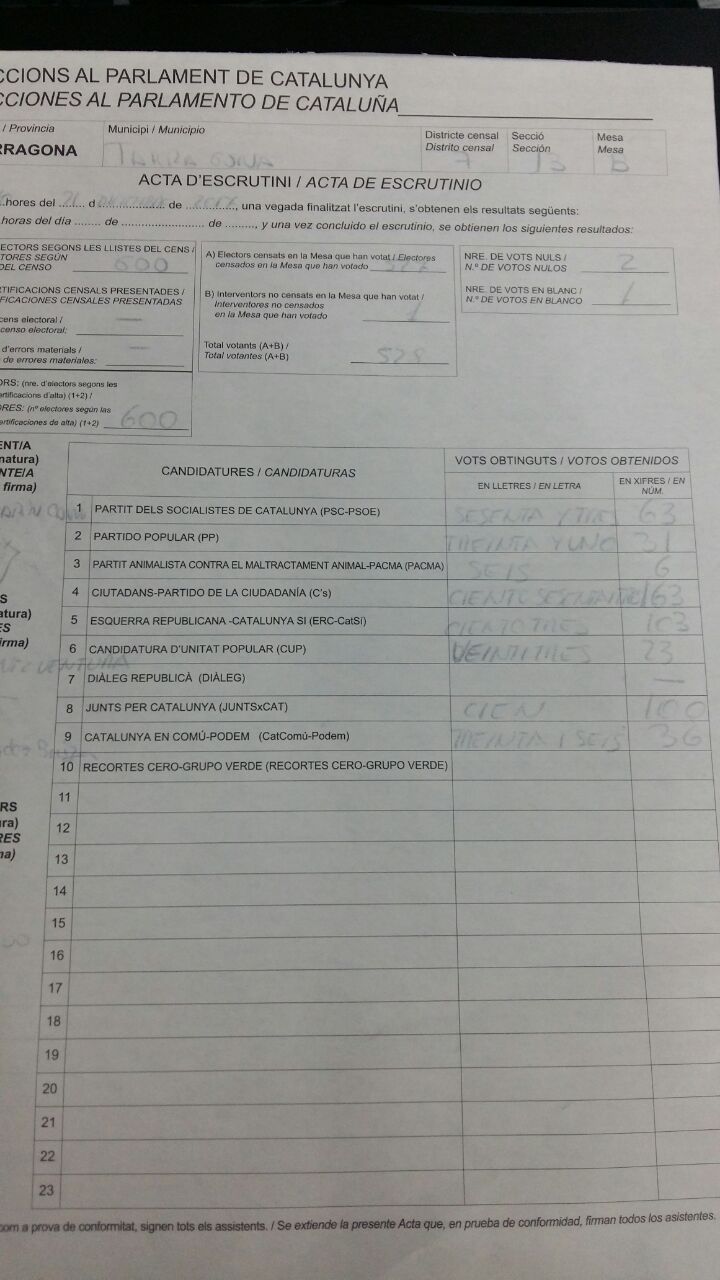 CCIONS AL PARLAMENT DE CATALUNYA
CCIONES AL PARLAMENTO DE CATALUÑA
/ Provincia Municipi / Municipio Districte censal Secció Mesa
Distrito censal Sección Mesa
RRAGONA TARRAGONA 7 13 B
ACTA D'ESCRUTINI / ACTA DE ESCRUTINIO
hores del 21 d de , una vegada finalitzat l'escrutini, s'obtenen els resultats següents:
horas del día ........ de ........................... de ........, y una vez concluido el escrutinio, se obtienen los siguientes resultados:
ECTORS SEGONS LES LLISTES DEL CENS /
TORES SEGÚN
DEL CENSO 600
TIFICACIONS CENSALS PRESENTADES /
FICACIONES CENSALES PRESENTADAS
cens electoral / —
censo electoral:
d'errors materials / —
de errores materiales:
ORS: (nre. d'electors segons les
ertificacions d'alta) (1+2) /
ORES: (nº electores según las
ertificaciones de alta) (1+2) 600
A) Electors censats en la Mesa que han votat / Electores
censados en la Mesa que han votado 527
B) Interventors no censats en la Mesa que han votat /
Interventores no censados
en la Mesa que han votado 1
Total votants (A+B) /
Total votantes (A+B) 528
NRE. DE VOTS NULS /
N.º DE VOTOS NULOS 2
NRE. DE VOTS EN BLANC /
N.º DE VOTOS EN BLANCO 1
ENT/A
natura)
NTE/A
firma)
CANDIDATURES / CANDIDATURAS VOTS OBTINGUTS / VOTOS OBTENIDOS
EN LLETRES / EN LETRA EN XIFRES / EN NÚM.
1 PARTIT DELS SOCIALISTES DE CATALUNYA (PSC-PSOE) SESENTA Y TRES 63
2 PARTIDO POPULAR (PP) TREINTA Y UNO 31
3 PARTIT ANIMALISTA CONTRA EL MALTRACTAMENT ANIMAL-PACMA (PACMA) SEIS 6
4 CIUTADANS-PARTIDO DE LA CIUDADANÍA (C's) CIENTO 163
5 ESQUERRA REPUBLICANA -CATALUNYA SI (ERC-CatSí) CIENTO TRES 103
6 CANDIDATURA D'UNITAT POPULAR (CUP) VEINTITRES 23
7 DIÀLEG REPUBLICÀ (DIÀLEG) —
8 JUNTS PER CATALUNYA (JUNTSxCAT) CIEN 100
9 CATALUNYA EN COMÚ-PODEM (CatComú-Podem) TREINTA I SEIS 36
10 RECORTES CERO-GRUPO VERDE (RECORTES CERO-GRUPO VERDE)
11
12
13
14
15
16
17
18
19
20
21
22
23
S
atura)
ES
irma)
VENTURA
RS
ra)
RES
na)
com a prova de conformitat, signen tots els assistents. / Se extiende la presente Acta que, en prueba de conformidad, firman todos los asistentes.